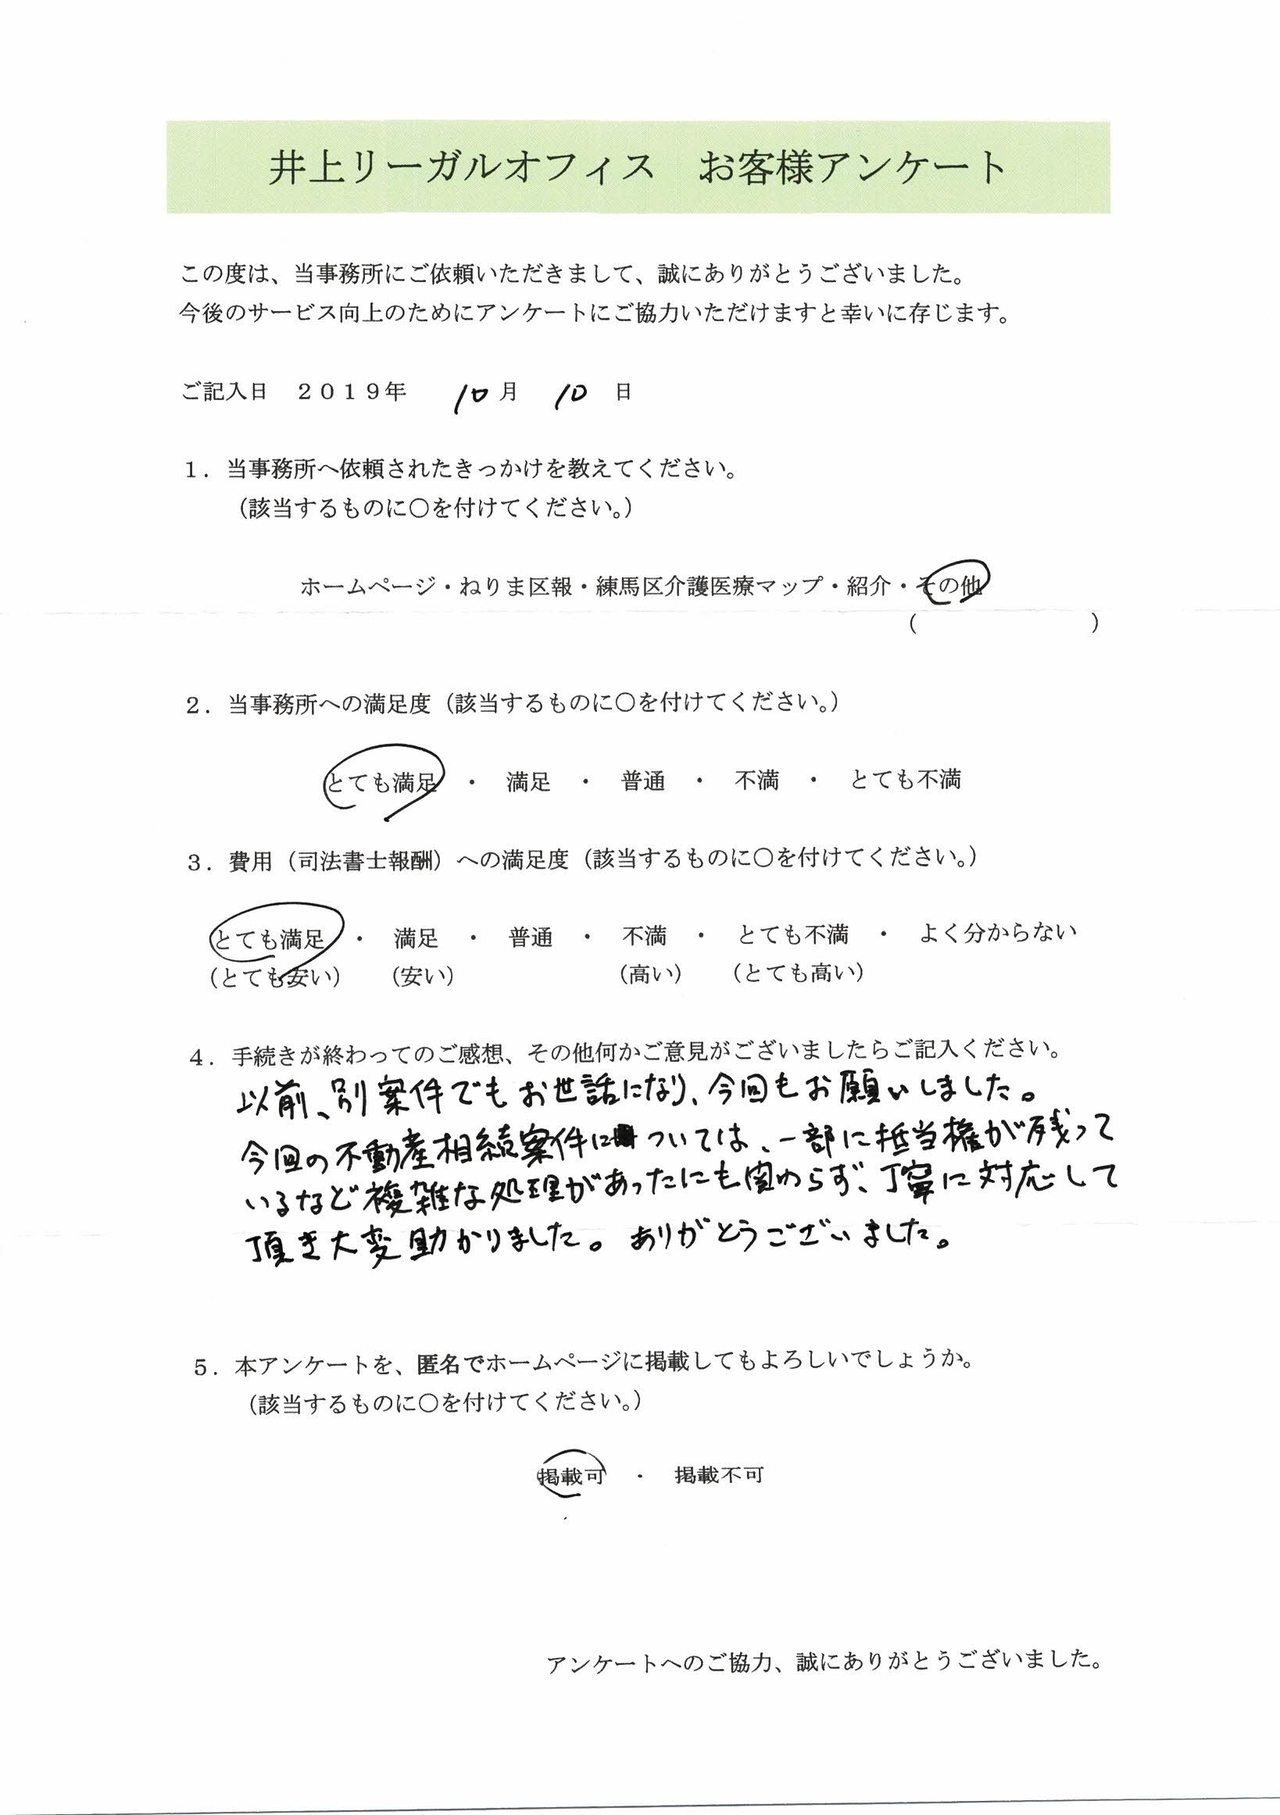 井上リーガルオフィス　お客様アンケート
この度は、当事務所にご依頼いただきまして、誠にありがとうございました。
今後のサービス向上のためにアンケートにご協力いただけますと幸いに存じます。
ご記入日　２０１９年　10月　10　日
１．当事務所へ依頼されたきっかけを教えてください。
（該当するものに〇を付けてください。）
ホームページ・ねりま区報・練馬区介護医療マップ・紹介・その他
（　　　　　　　　）
２．当事務所への満足度（該当するものに〇を付けてください。）
とても満足　・　満足　・　普通　・　不満　・　とても不満
３．費用（司法書士報酬）への満足度（該当するものに〇を付けてください。）
とても満足　・　満足　・　普通　・　不満　・　とても不満　・　よく分からない
（とても安い）　（安い）　（高い）　（とても高い）
４．手続きが終わってのご感想、その他何かご意見がございましたらご記入ください。
以前、別案件でもお世話になり、今回もお願いしました。
今回の不動産相続案件については、一部に抵当権が残って
いるなど複雑な処理があったにも関わらず、丁寧に対応して
頂き大変助かりました。ありがとうございました。
５．本アンケートを、匿名でホームページに掲載してもよろしいでしょうか。
（該当するものに〇を付けてください。）
掲載可　・　掲載不可
アンケートへのご協力、誠にありがとうございました。